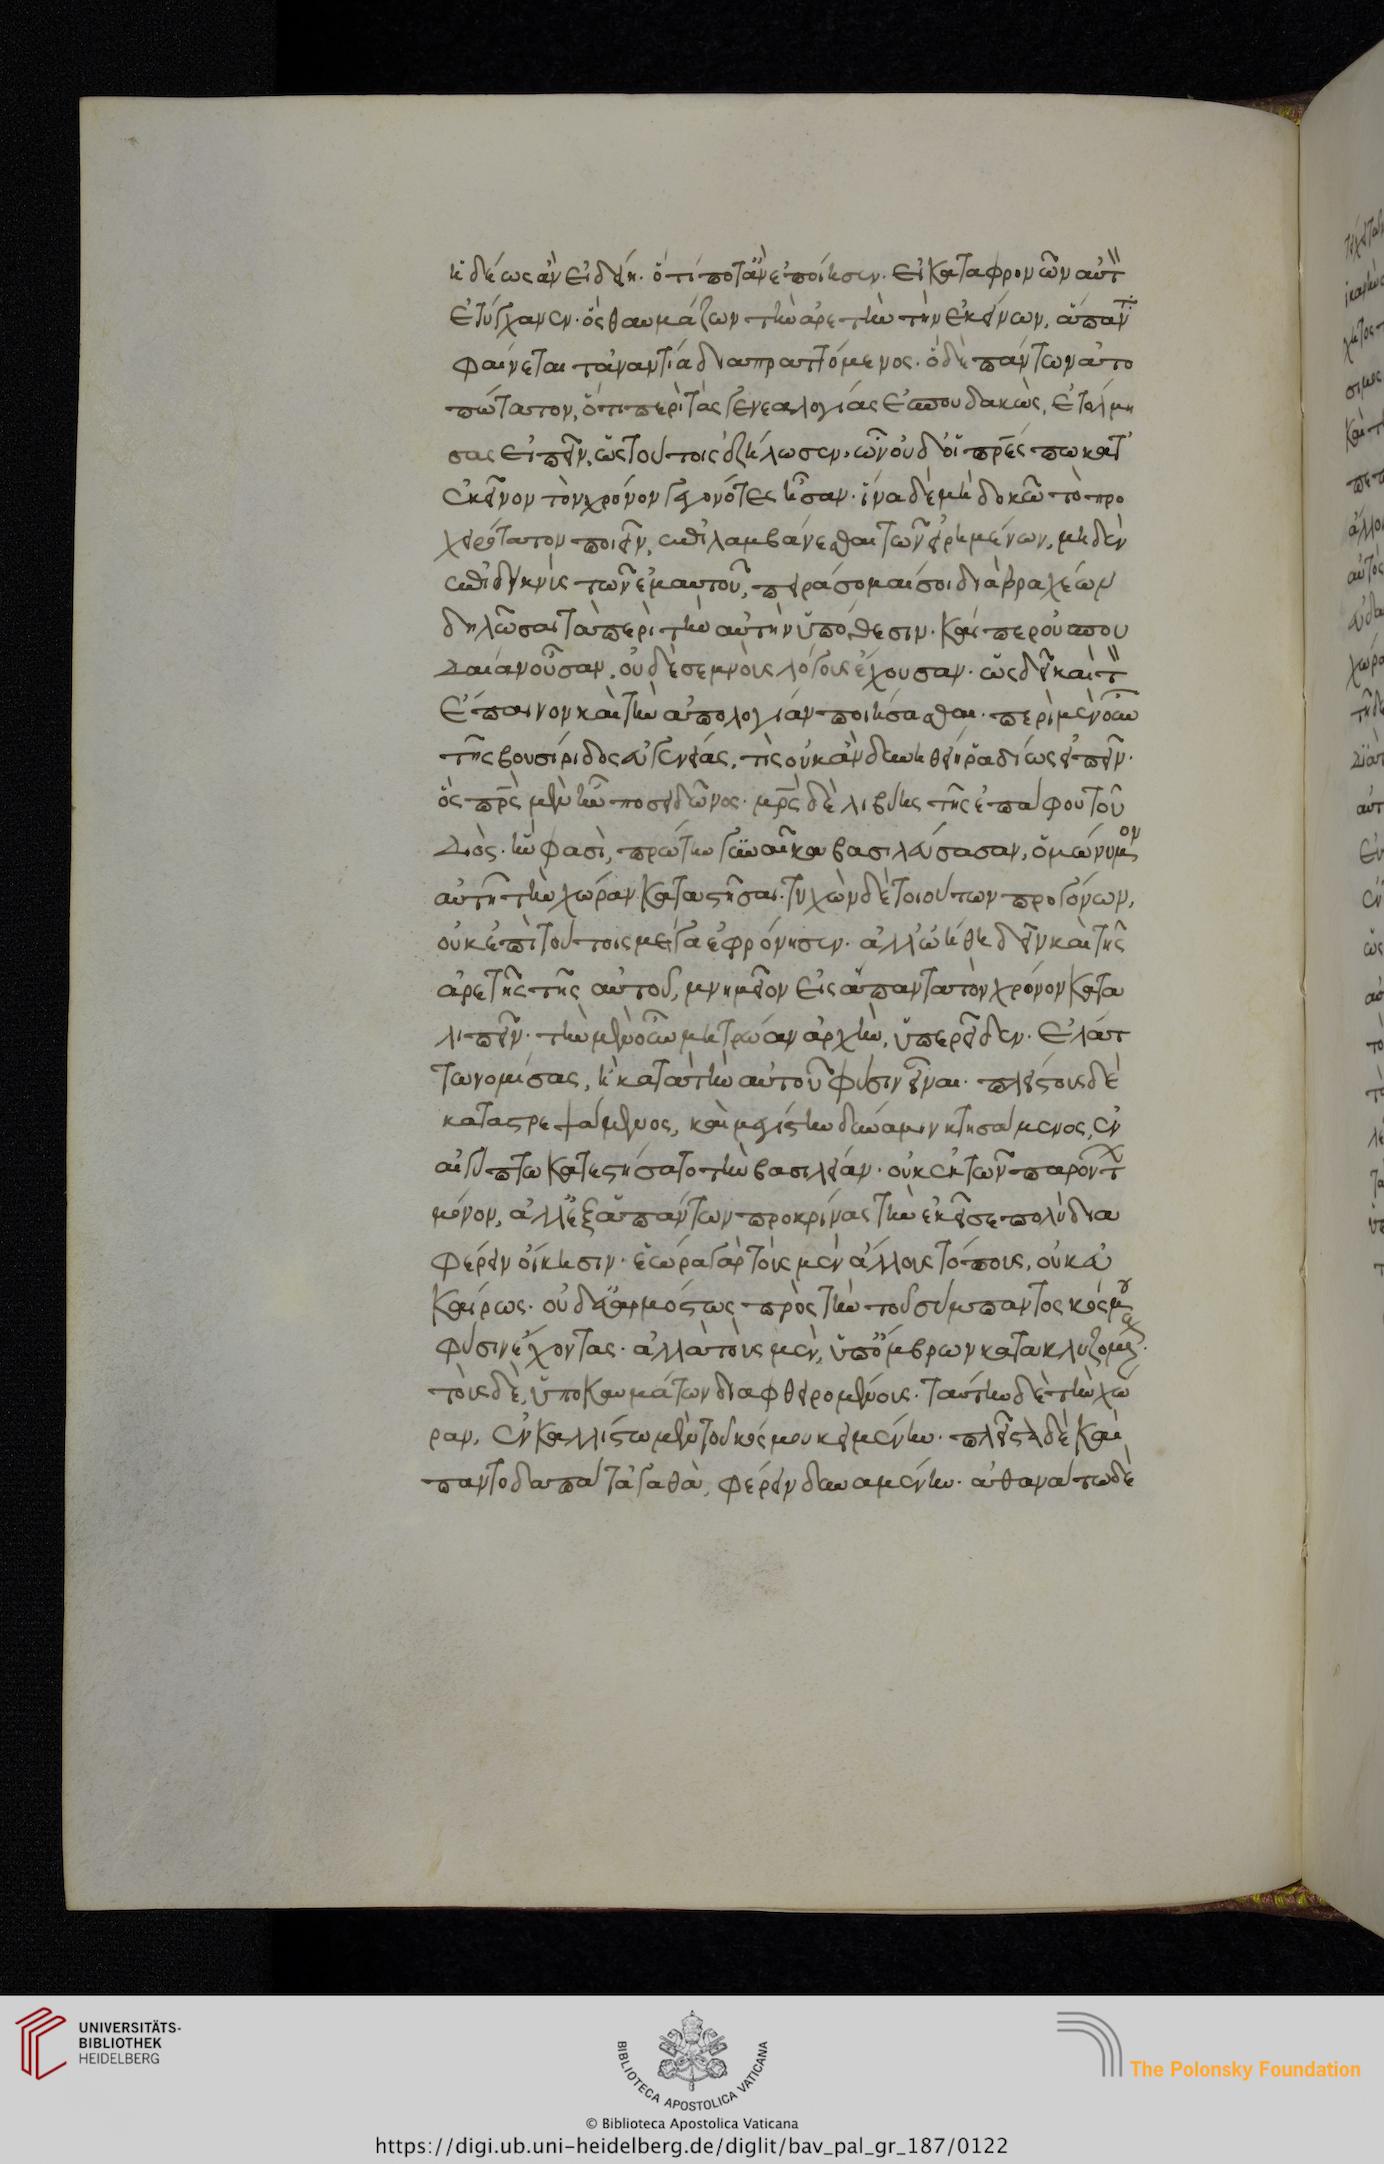 ἡδέως ἂν εἰδείη. ὅτί ποτἂν ἐποίησεν. εἰ καταφρονῶν αὐτῶν
ἐτύγχανεν. ὃς θαυμάζων τὴν ἀρετὴν τὴν ἐκείνων, ἅπαντα
φαίνεται τἀναντία διαπραττόμενος. ὃ δὲ πάντων ἀτο
πώτατον, ὅτι περὶ τὰς γενεαλογίας ἐσπουδακὼς, ἐτόλμη
σας εἰπεῖν, ὡς τούτοις ἐζήλωσεν. ὧν οὐδ' οἱ πρ̅ες πω κατ'
ἐκεῖνον τὸν χρόνον γεγονότες ἦσαν. ἵνα δὲ μὴ δοκῶ τὸ προ
χειρότατον ποιεῖν, ἐπιλαμβάνεσθαι τῶν εἰρημένων, μηδὲν
ἐπιδεικνὺς τῶν ἐμαυτοῦ, πειράσομαί σοι διὰ βραχέων
δηλῶσαι τὰ περὶ τὴν αὐτὴν ὑπόθεσιν. καί περ οὐ σπου
δαίαν οὖσαν, οὐδὲ σεμνοὺς λόγους ἔχουσαν. ὡς δεῖ καὶ τὸν
ἔπαινον καὶ τὴν ἀπολογίαν ποιήσασθαι. περὶ μὲν οὖν
τῆς βουσίριδος εὐγενείας, τὶς οὐκ ἂν δυνηθείη ῥαδίως εἰπεῖν.
ὃς πρ̅ς μὲν ἦν ποσειδῶνος. μρ̅ς δὲ λιβύης τῆς ἐπάφου τοῦ
διὸς. ἥν φασὶ, πρώτην γυναῖκα βασιλεύσασαν, ὁμώνυμον
αὐτῇ τὴν χώραν καταστῆσαι. τυχὼν δὲ τοιούτων προγόνων,
οὐκ ἐπὶ τούτοις μέγα ἐφρόνησεν. ἀλλ' ὠήθη δεῖν καὶ τῆς
ἀρετῆς τῆς αὐτοῦ, μνημεῖον εἰς ἅπαντα τὸν χρόνον κατα
λιπεῖν. τὴν μὲν οὖν μητρώαν ἀρχὴν, ὑπερεῖδεν. ἐλάτ
τω νομίσας, ἢ κατὰ τὴν αὐτοῦ φύσιν εἶναι. πλείστους δὲ
καταστρεψάμενος, καὶ μεγίστην δύναμιν κτησάμενος, ἐν
αἰγύπτω κατεστήσατο τὴν βασιλείαν. οὐκ ἐκ τῶν παρόντων
μόνον, ἀλλ' ἐξ ἁπάντων προκρίνας τὴν ἐκεῖσε πολὺ δια
φέρειν οἴκησιν. ἑώρα γὰρ τοὺς μὲν ἄλλους τόπους, οὐκ εὐ
καίρως. οὐδ' εὐαρμόστως πρὸς τὴν τοῦ σύμπαντος κόσμου
φύσιν ἔχοντας. ἀλλὰ τοὺς μὲν, ὑπ' ὄμβρων κατακλυζομένους.
τοὺς δὲ, ὑπὸ καυμάτων διαφθειρομένους. ταύτην δὲ τὴν χώ
ραν, ἐν καλλίστω μὲν τοῦ κόσμου κειμένην. πλεῖστα δὲ καὶ
παντοδαπὰ τἀγαθὰ, φέρειν δυναμένην. ἀθανάτω δὲ
UNIVERSITÄTS-
BIBLIOTHEK
HEIDELBERG
BIBLIOTECA APOSTOLICA VATICANA
The Polonsky Foundation
© Biblioteca Apostolica Vaticana
https://digi.ub.uni-heidelberg.de/diglit/bav_pal_gr_187/0122